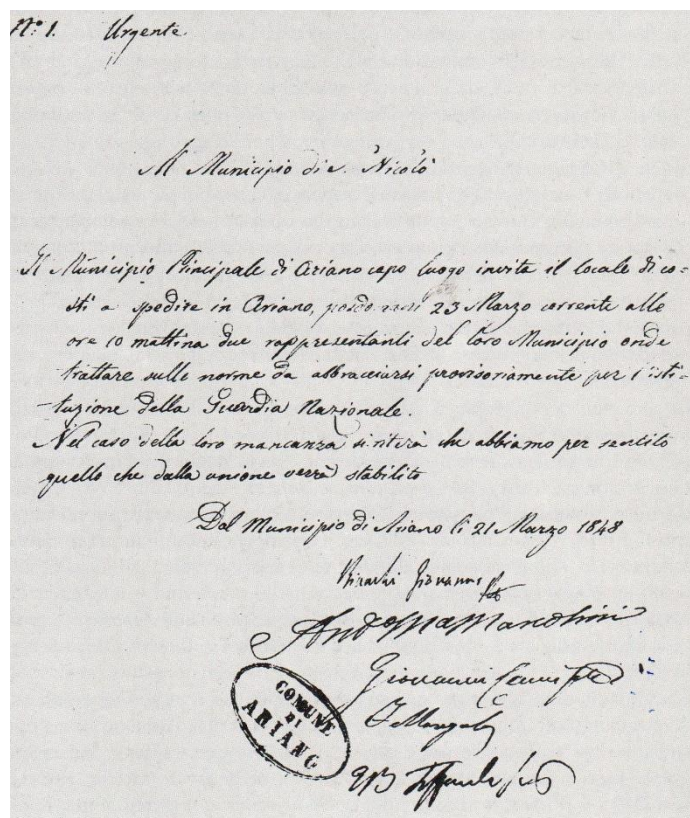 N.º 1. Urgente
Al Municipio di S. Nicolò
Il Municipio Principale di Ariano capo luogo invita il locale di co=
sti a spedire in Ariano, 23 Marzo corrente alle
ore 10 mattina due rappresentanti del loro Municipio onde
trattare sulle norme da abbracciarsi provisoriamente per l'isti=
=tuzione della Guardia Nazionale.
Nel caso della loro mancanza si riterà che abbiamo per sentito
quello che dalla unione verrà stabilito
Dal Municipio di Ariano li 21 Marzo 1848
Giovanni
Giovanni
COMUNE
DI
ARIANO